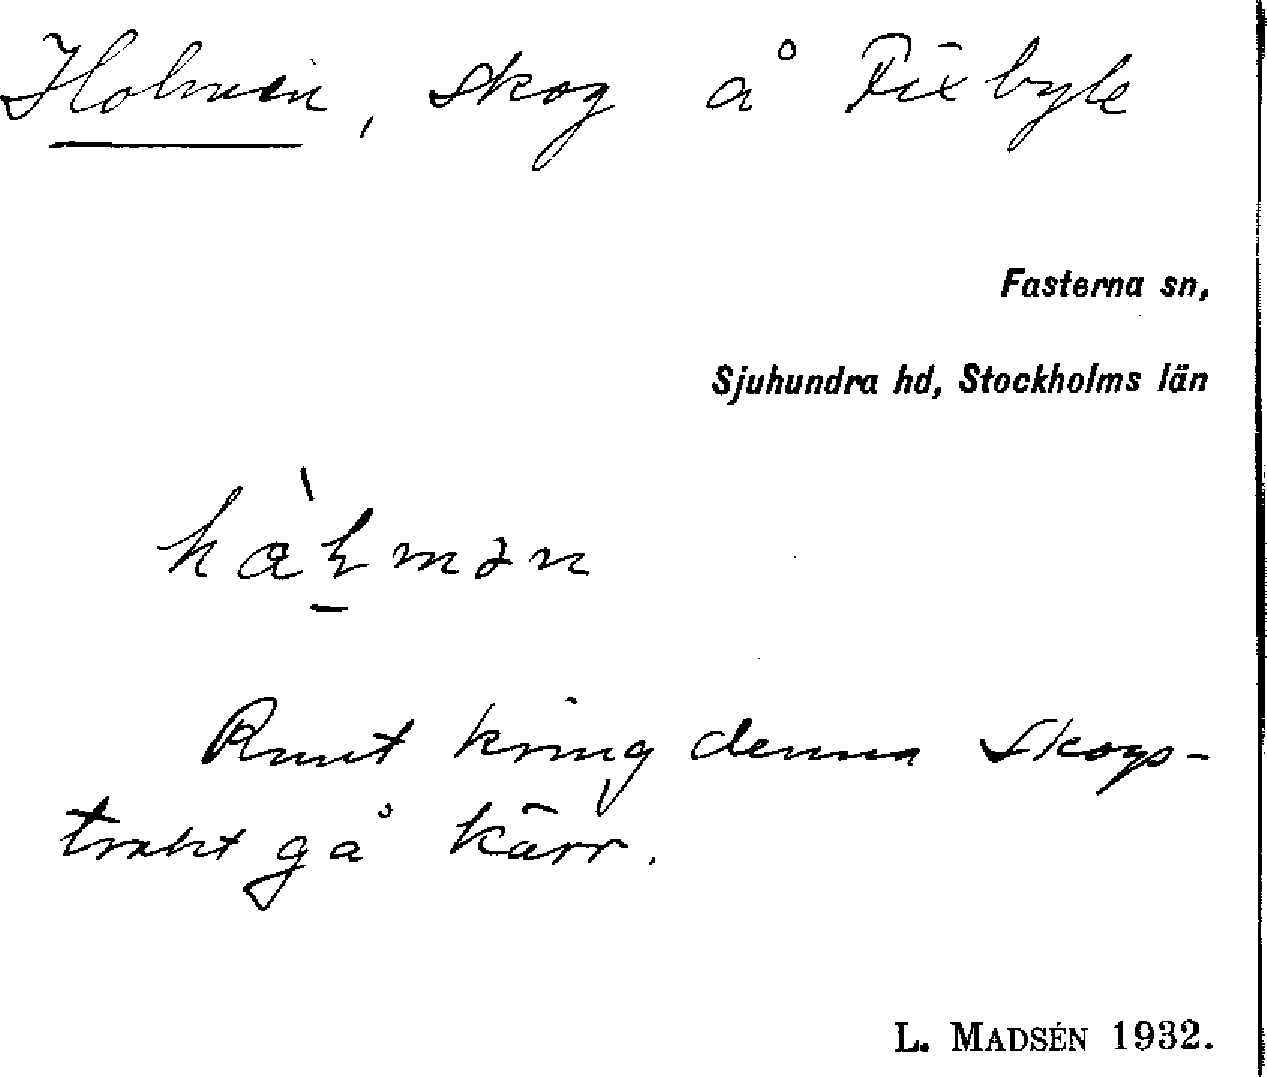 Holmen, skog å Fixbyle
Fasterna sn,
Sjuhundra hd, Stockholms län
Runt kring denna skogs-
trakt gå kärr.
L. MADSÉN 1932.